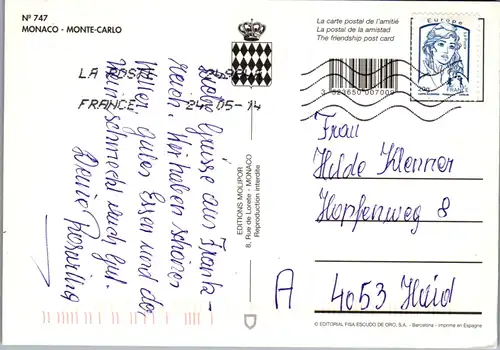 Nº 747
MONACO - MONTE-CARLO
LA POSTE
FRANCE 24-05-14
Liebe Grüsse aus Frank-
reich. Wir haben schönes
Wetter, gutes Essen und der
Wein schmeckt auch gut.
Deine
EDITIONS MOLIPOR
8, Rue de Lorète - MONACO
Reproduction interdite
La carte postal de l'amitié
La postal de la amistad
The friendship post card
Europe
20g
FRANCE
Frau
Hilde Klenner
Hopfenweg 8
A 4053 Haid
© EDITORIAL FISA ESCUDO DE ORO, S.A. - Barcelona - Imprimé en Espagne